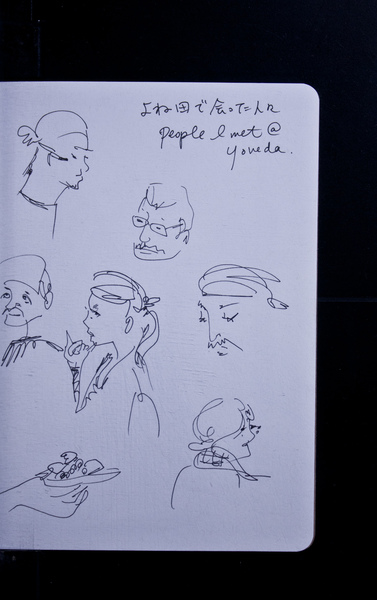 よね田で会った人々
People I met @
Yoneda.